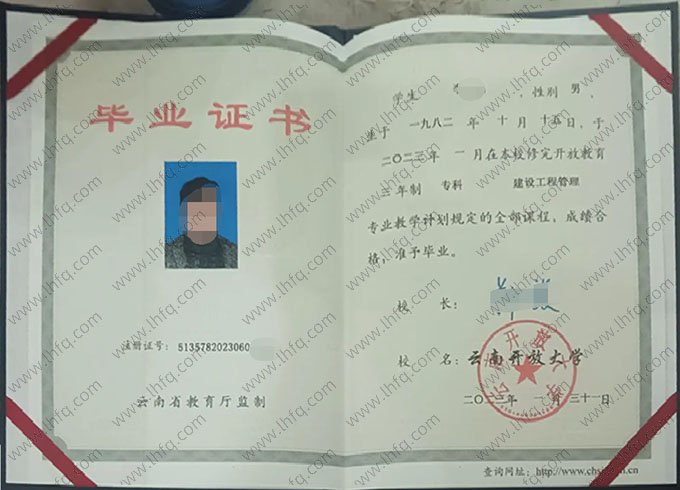 毕业证书
注册证号: 5135782023060
云南省教育厅监制
学生 , 性别 男,
生于 一九八二 年 十 月 十五日, 于
二〇二三年 一 月在本校修完开放教育
三 年制 专科 建设工程管理
专业教学计划规定的全部课程, 成绩合
格, 准予毕业。
校 长:
校 名: 云南开放大学
二〇二三年 一 月 三十一日
查询网址: http://www.chsi.com.cn
云南开放大学
www.lhfq.com